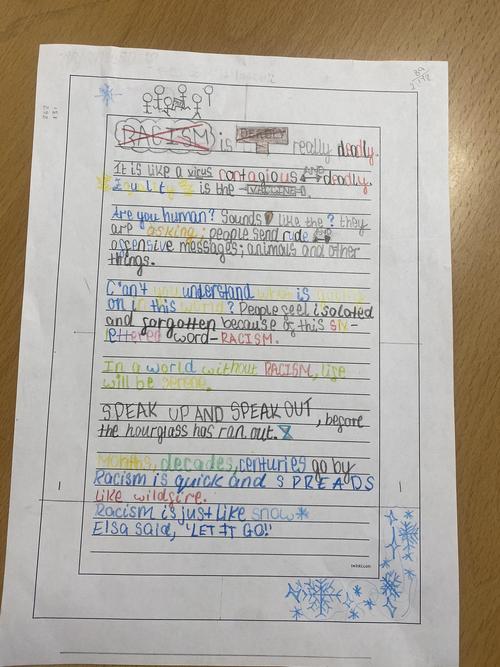 RACISM is really deadly.
It is like a virus contagious AND deadly.
Equality is the VACCINE.
Are you human? Sounds like the ? they
are asking; people send rude AND
offensive messages; animous and other
things.
Can't you understand what is going
on in this world? People feel isolated
and forgotten because of this SIX-
lettered word-RACISM.
In a world without RACISM, life
will be serene.
SPEAK UP AND SPEAK OUT, before
the hourglass has ran out.
Months, decades, centuries go by
Racism is quick and SPREADS
like wildfire.
Racism is just like snow
Elsa said, 'LET IT GO!'
twinkl.com